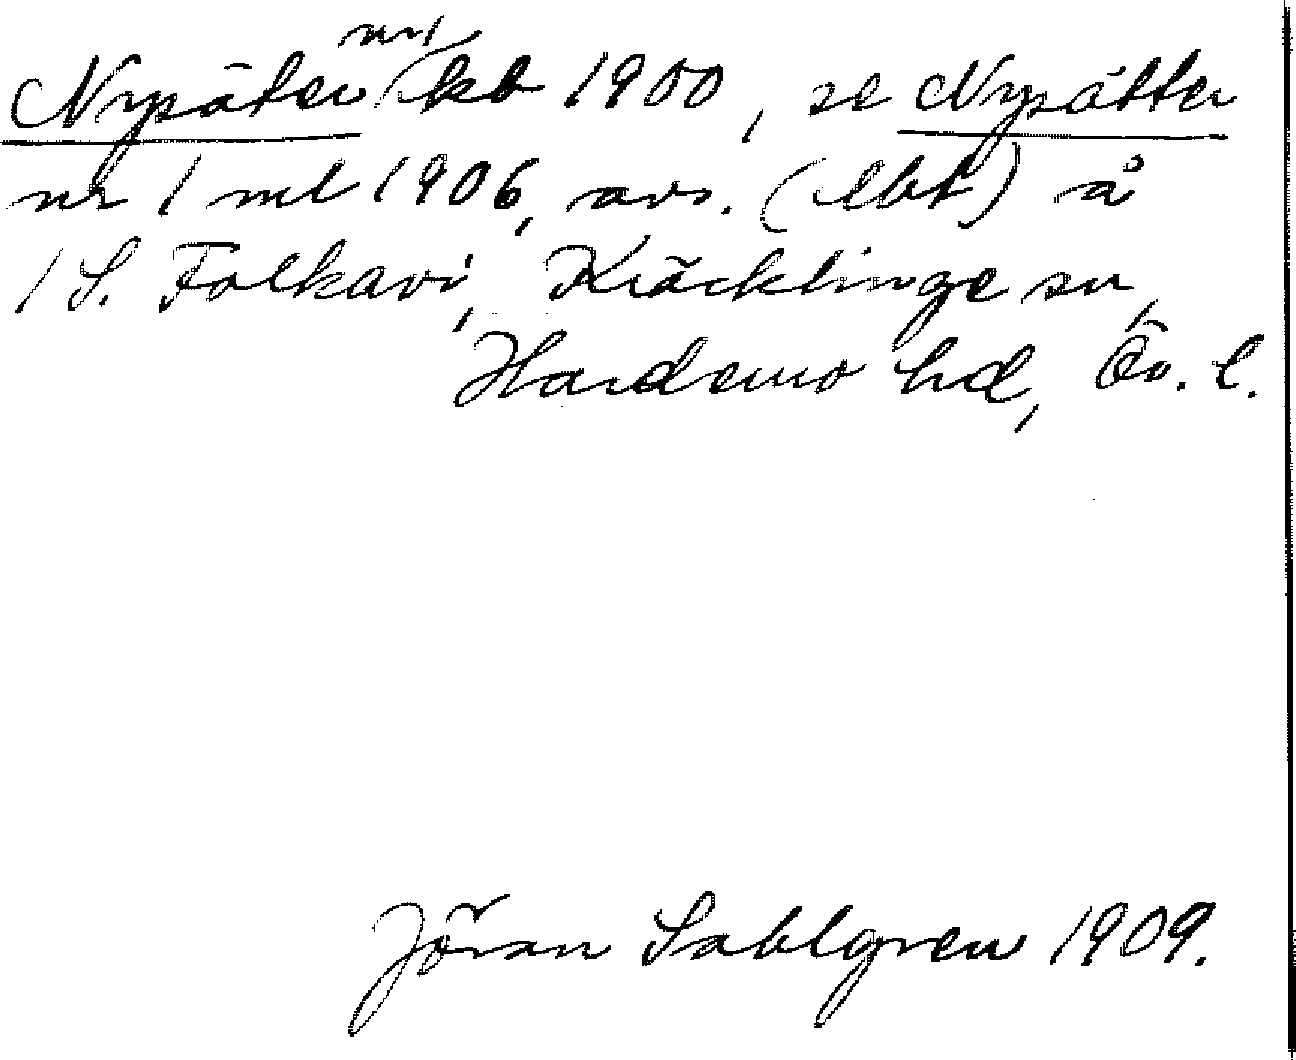 Nysäter nr 1 kb 1900, se Nysätter
nr 1 ml 1906, avs. (lbt) å
1 S. Folkavi, Kräcklinge sn,
Hardemo hd, Ör. l.
Jöran Sahlgren 1909.